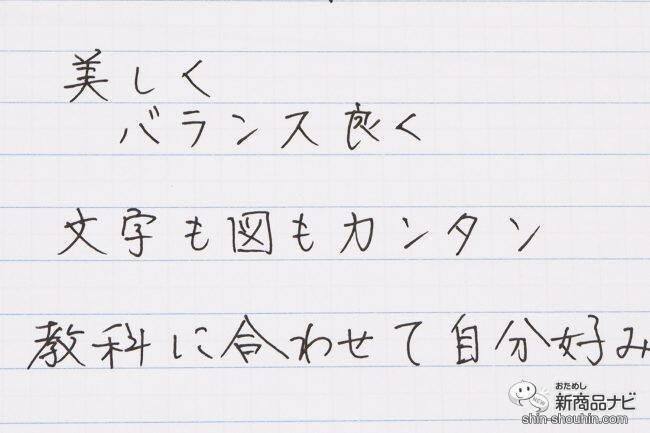 美しく
バランス良く
文字も図もカンタン
教科に合わせて自分好み
おためし
新商品ナビ
shin-shouhin.com